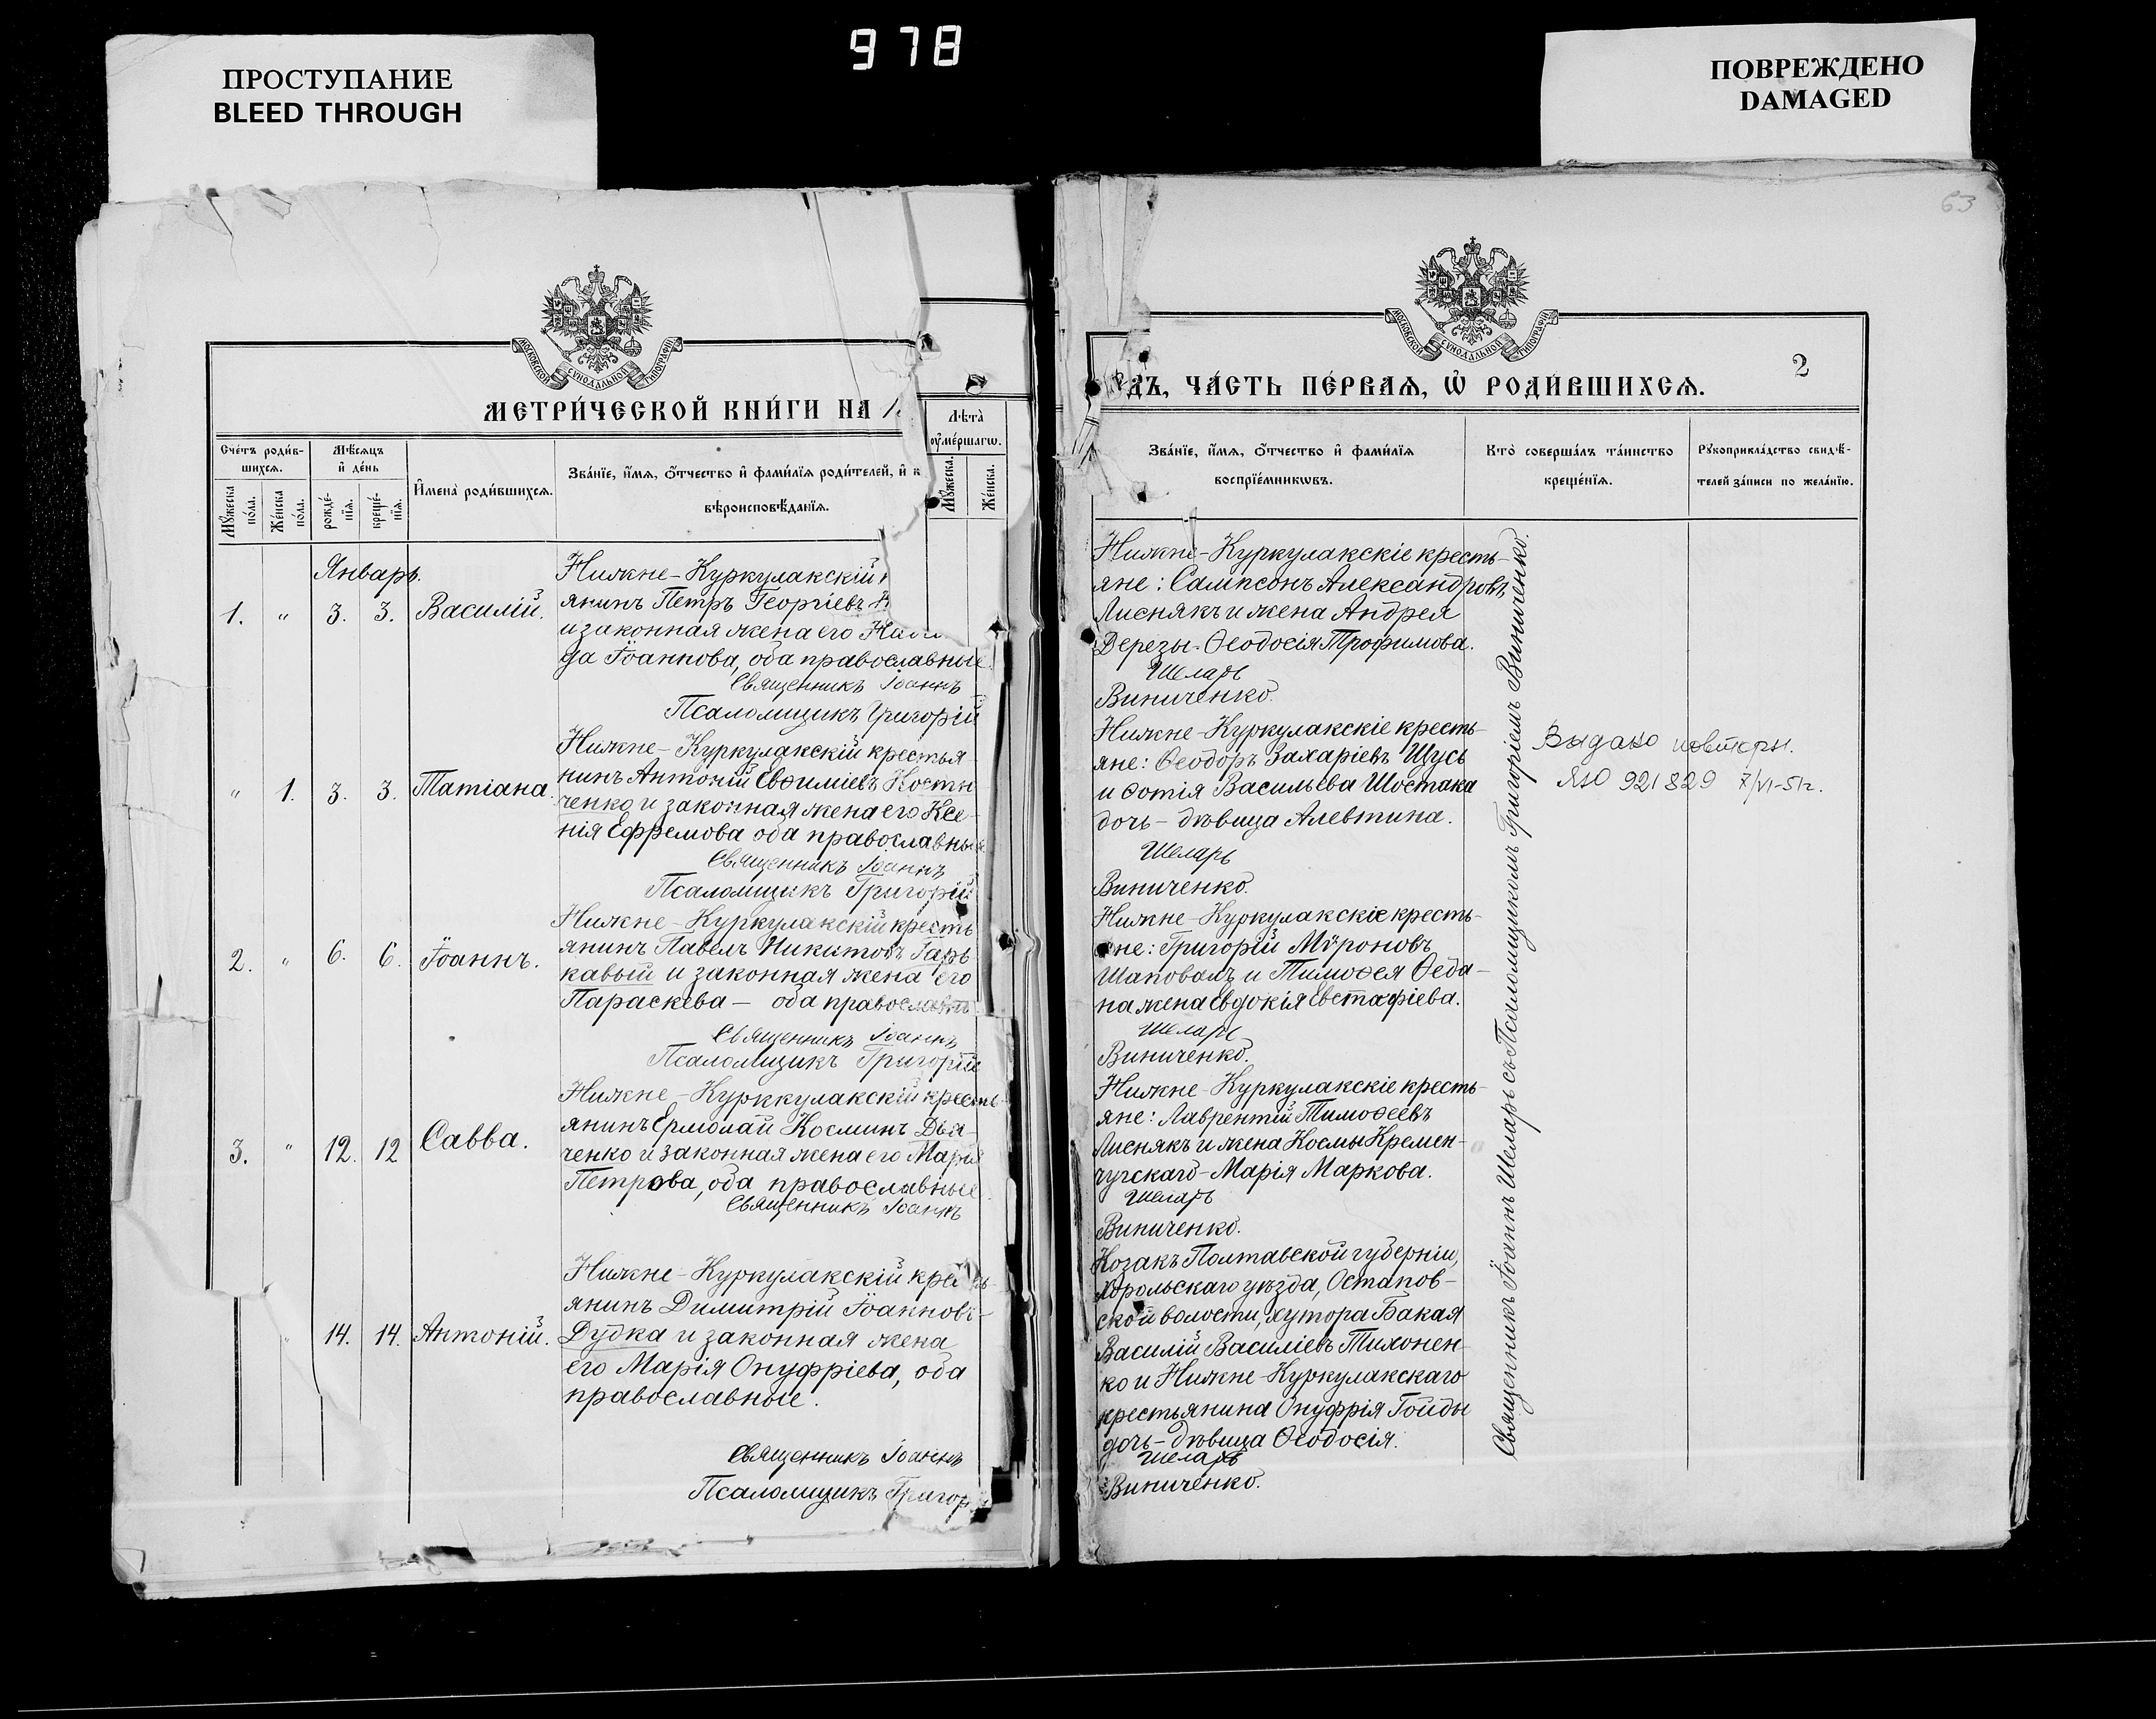 978
ПРОСТУПАНИЕ
BLEED THROUGH
ПОВРЕЖДЕНО
DAMAGED
63
МОСКОВСКОЙ СУНОДАЛЬНОЙ ТИПОГРАФІИ
МЕТРИ́ЧЕСКОЙ КНИ́ГИ НА 1
Сче́тъ роди́в-
шихсѧ.
Мꙋ́жеска по́ла.
Же́нска по́ла.
Мѣ́сѧцъ
и҆ де́нь
рожде́-
нїѧ.
креще́-
нїѧ.
И҆мена̀ роди́вшихсѧ.
Зва́нїе, и҆́мѧ, ѻ҆́тчество и҆ фами́лїѧ роди́телей, и҆ к
вѣроисповѣ́данїѧ.
Лѣ́та̀
ᲂу҆ме́ршагѡ.
Мꙋ́жеска.
Же́нска.
Январь.
1. " 3. 3. Василій.
Нижне-Куркулакскій
янинъ Петръ Георгіевъ
и законная жена его
да Іоаннова, оба православные.
Священникъ Іоаннъ
Псаломщикъ Григорій
" 1. 3. 3. Татіана.
Нижне-Куркулакскій крестья-
нинъ Антоній Евѳиміевъ Кости
ченко и законная жена его Ксе-
нія Ефремова оба православные
Священникъ Іоаннъ
Псаломщикъ Григорій
2. " 6. 6. Іоаннъ.
Нижне-Куркулакскій кресть
янинъ Павелъ Никитовъ Гарь
кавый и законная жена его
Параскева — оба православн
Священникъ Іоаннъ
Псаломщикъ Григорій
3. " 12. 12 Савва.
Нижне-Курккулакскій кресть-
янинъ Ермолай Косминъ Дья-
ченко и законная жена его Марія
Петрова, оба православные.
Священникъ Іоаннъ
" 14. 14. Антоній.
Нижне-Куркулакскій кре
янинъ Димитрій Іоанновъ-
Дудка и законная жена
его Марія Онуфріева, оба
православные.
Священникъ Іоаннъ
Псаломщикъ Григор
МОСКОВСКОЙ СУНОДАЛЬНОЙ ТИПОГРАФІИ
ДЪ, ЧА́СТЬ ПЕ́РВАѦ, Ѡ҆ РОДИ́ВШИХСѦ.
2
Зва́нїе, и҆́мѧ, ѻ҆́тчество и҆ фами́лїѧ
воспрїе́мникѡвъ.
Кто̀ соверша́лъ та́инство
креще́нїѧ.
Рꙋкоприкла́дство свидѣ́-
телей за́писи по жела́нїю.
Нижне-Куркулакскіе кресть-
яне: Сампсонъ Александровъ
Лиснякъ и жена Андрея
Березы-Ѳеодосія Трофимова.
Шеларь
Виниченко.
Нижне-Куркулакскіе кресть-
яне: Ѳеодоръ Захаріевъ Щусь
и Фотія Васильева Шостака
дочь-дѣвица Алевтина.
Шеларь
Виниченко.
Нижне-Куркулакскіе кресть-
яне: Григорій Мѵроновъ
Шаповалъ и Тимоѳея Ѳеда-
на жена Евдокія Евстафіева.
Шеларь
Виниченко.
Нижне-Куркулакскіе кресть-
яне: Лаврентій Тимоѳеевъ
Лиснякъ и жена Космы Кремен-
чугскаго-Марія Маркова.
Шеларь
Виниченко.
Козакъ Полтавской губерніи,
Хорольскаго уѣзда, Остапов-
ской волости, хутора Бакая
Василій Василіевъ Тихонен-
ко и Нижне-Куркулакскаго
крестьянина Онуфрія Гойды
дочь-дѣвица Ѳеодосія.
Шеларь
Виниченко.
Священникъ Іоаннъ Шеларь съ Псаломщикомъ Григоріемъ Виниченко.
Выдано повторн.
ЯЮ 921829 7/VI-51г.